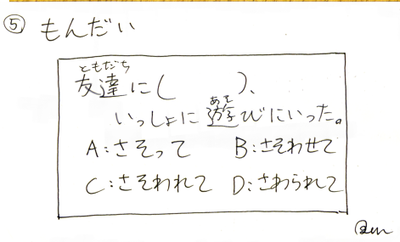 ⑤ もんだい
ともだち
友達に(　　　)、
あそ
いっしょに遊びにいった。
A:さそって　B:さそわせて
C:さそわれて　D:さわられて